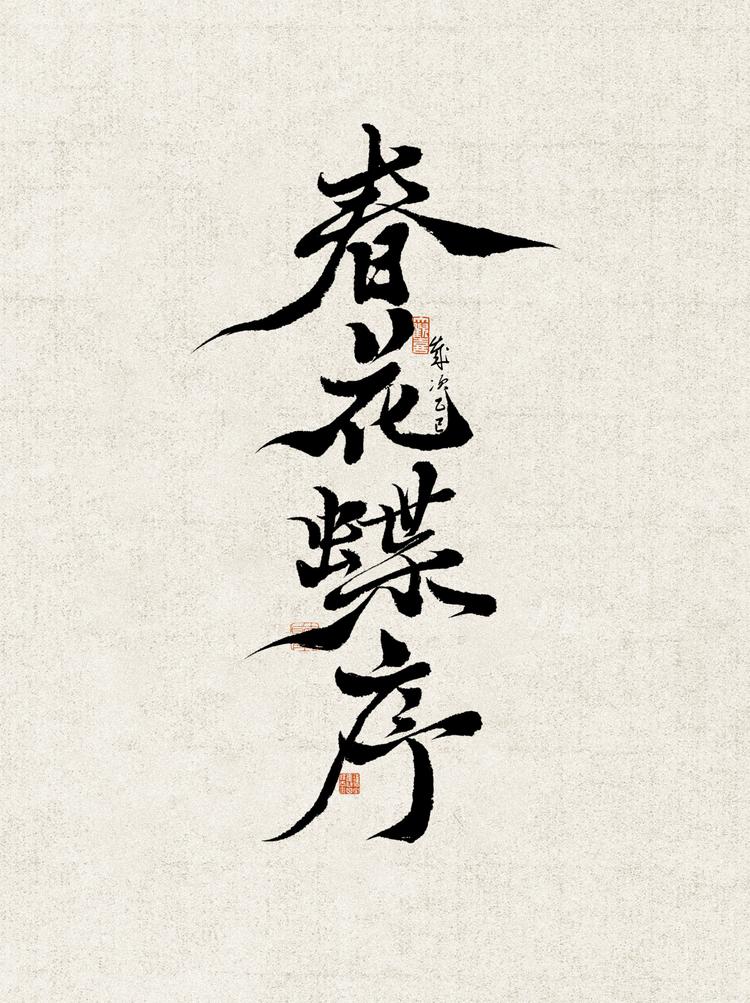 春花蝶序
歲次乙巳